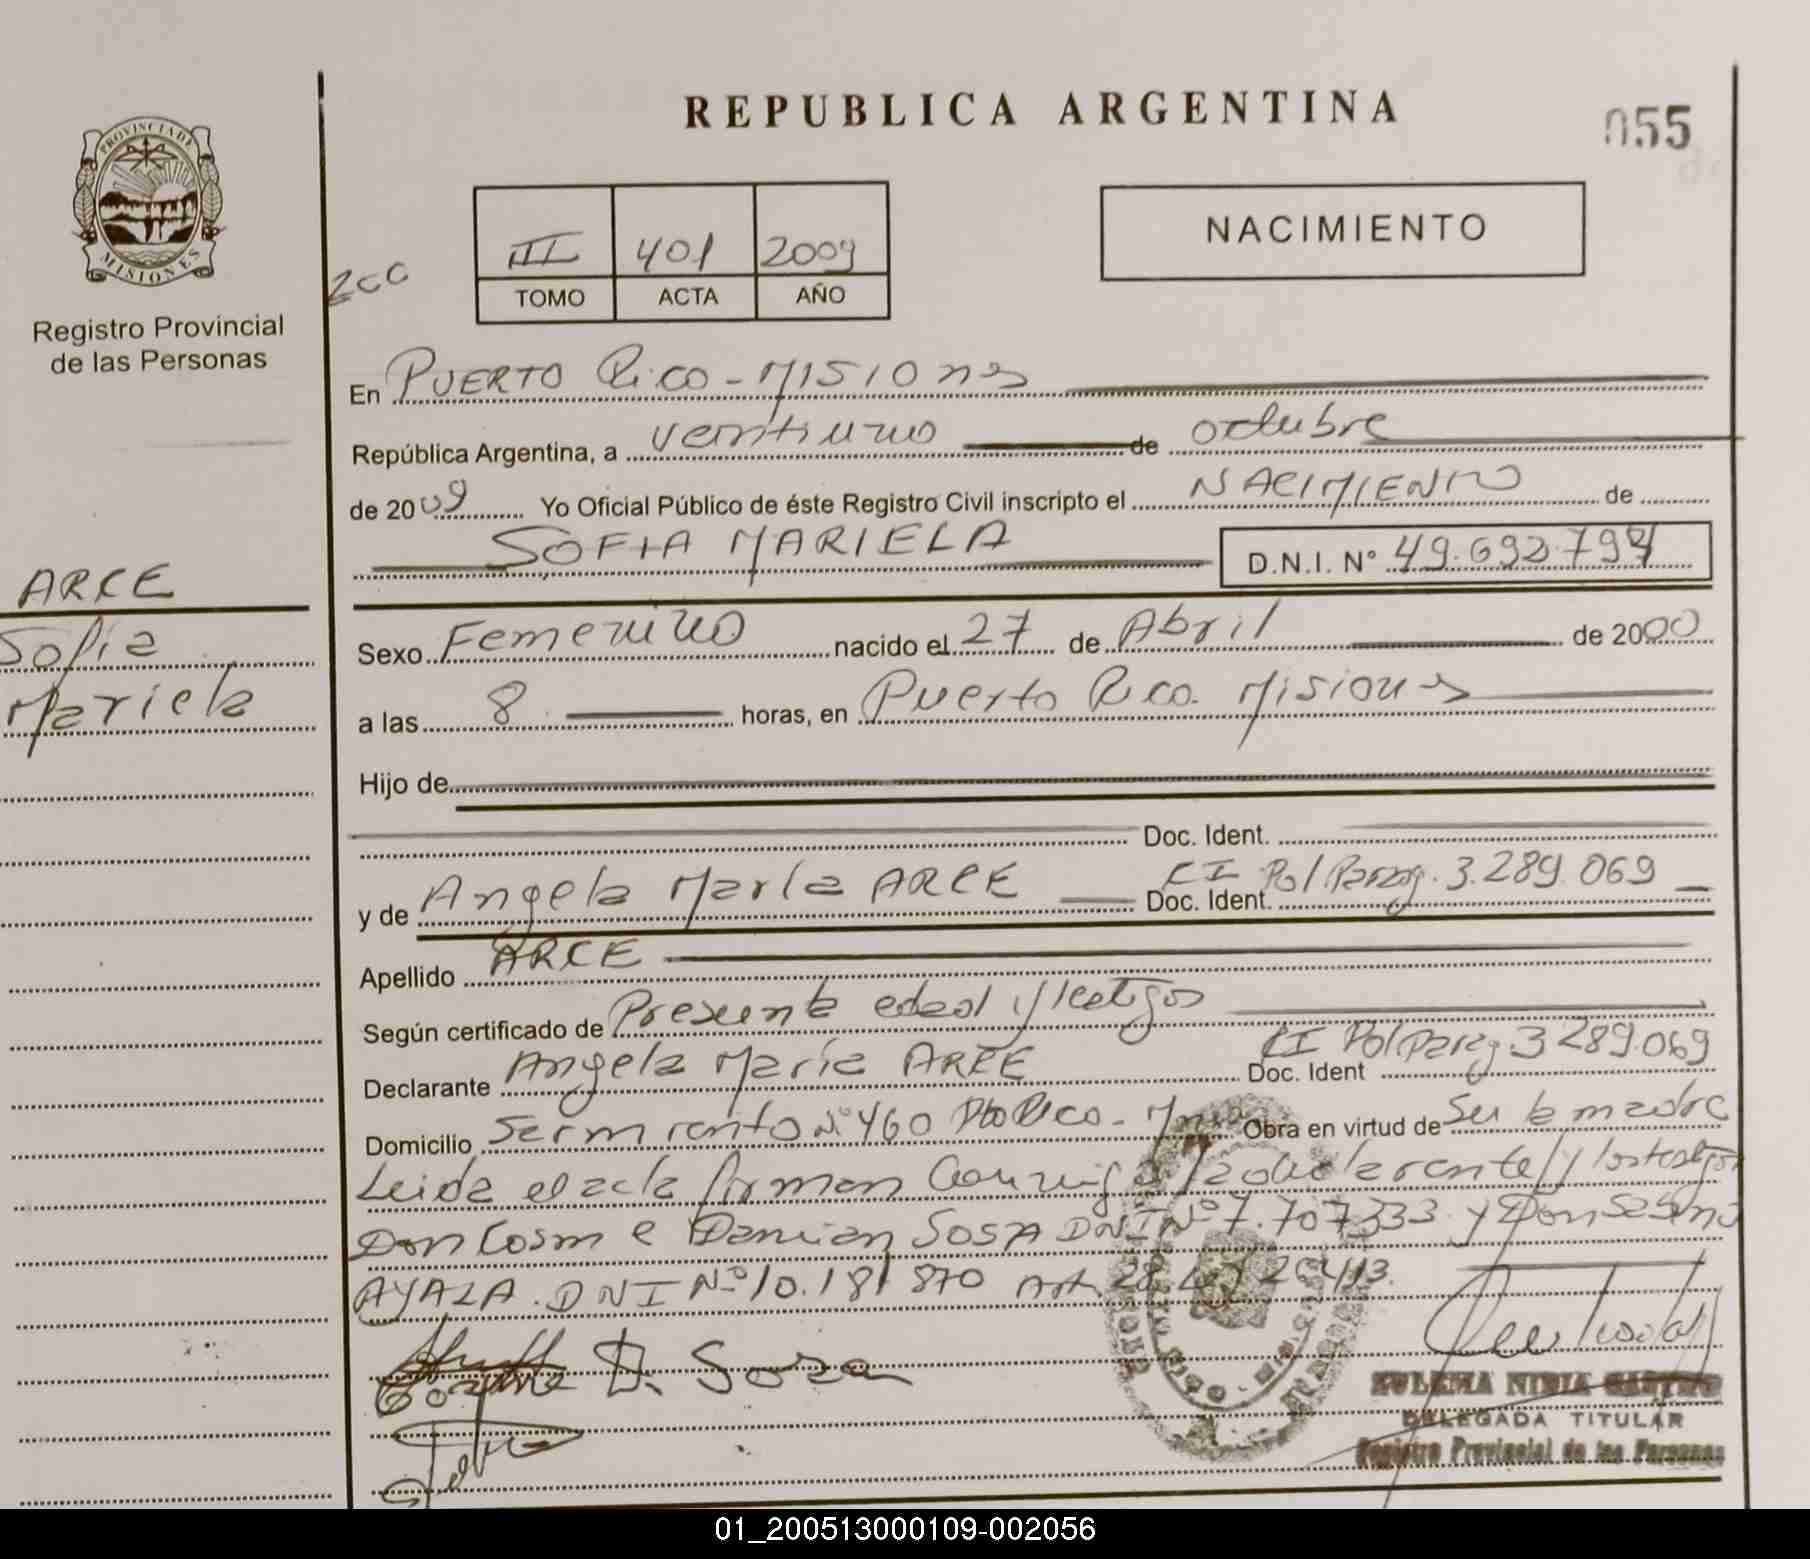 REPUBLICA ARGENTINA
055
PROVINCIA DE
MISIONES
Registro Provincial
de las Personas
III 401 2009
TOMO ACTA AÑO
NACIMIENTO
En PUERTO RICO - MISIONES
República Argentina, a veintiuno de octubre
de 2009 Yo Oficial Público de éste Registro Civil inscripto el NACIMIENTO de
SOFIA MARIELA D.N.I. Nº 49.692.794
ARCE
Sofia
Mariela
Sexo Femenino nacido el 27 de Abril de 2000
a las 8 horas, en Puerto Rico. Misiones
Hijo de
Doc. Ident.
y de Angela María ARCE Doc. Ident. CI Pol Parag. 3.289.069
Apellido ARCE
Según certificado de Presunta edad y testigos
Declarante Angela María ARCE Doc. Ident CI Pol Parag 3 289.069
Domicilio Sarmiento Nº 460 Pto Rico - Mnes Obra en virtud de Ser la madre
Leida el acta firman conmigo la declarante y los testigos
Don Cosme Damian SOSA DNI Nº 7.707.333 y Don Sabino
AYALA. DNI Nº 10.181 870 Art. 28 Ley 26413.
D. Sosa
ZULEMA NIDIA
DELEGADA TITULAR
Registro Provincial de las Personas
01_200513000109-002056